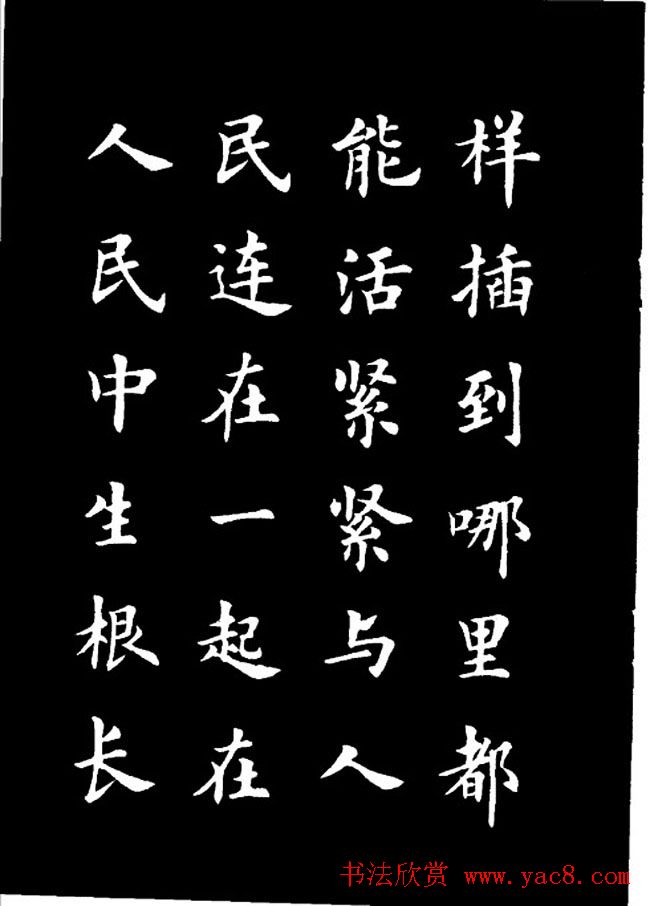 样插到哪里都
能活紧紧与人
民连在一起在
人民中生根长
书法欣赏 www.yac8.com